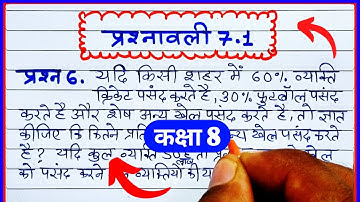 प्रश्नावली 7.1
प्रश्न 6. यदि किसी शहर में 60% व्यक्ति
क्रिकेट पसंद करते है, 30% फुटबॉल पसंद
करते है और शेष अन्य खेल पसंद करते है, तो ज्ञात
कीजिए कि कितने प्रति न्य खेल पसंद करते
कक्षा 8
है? यदि कुल व्यक्ति
को पसंद करने व्यक्तियों की